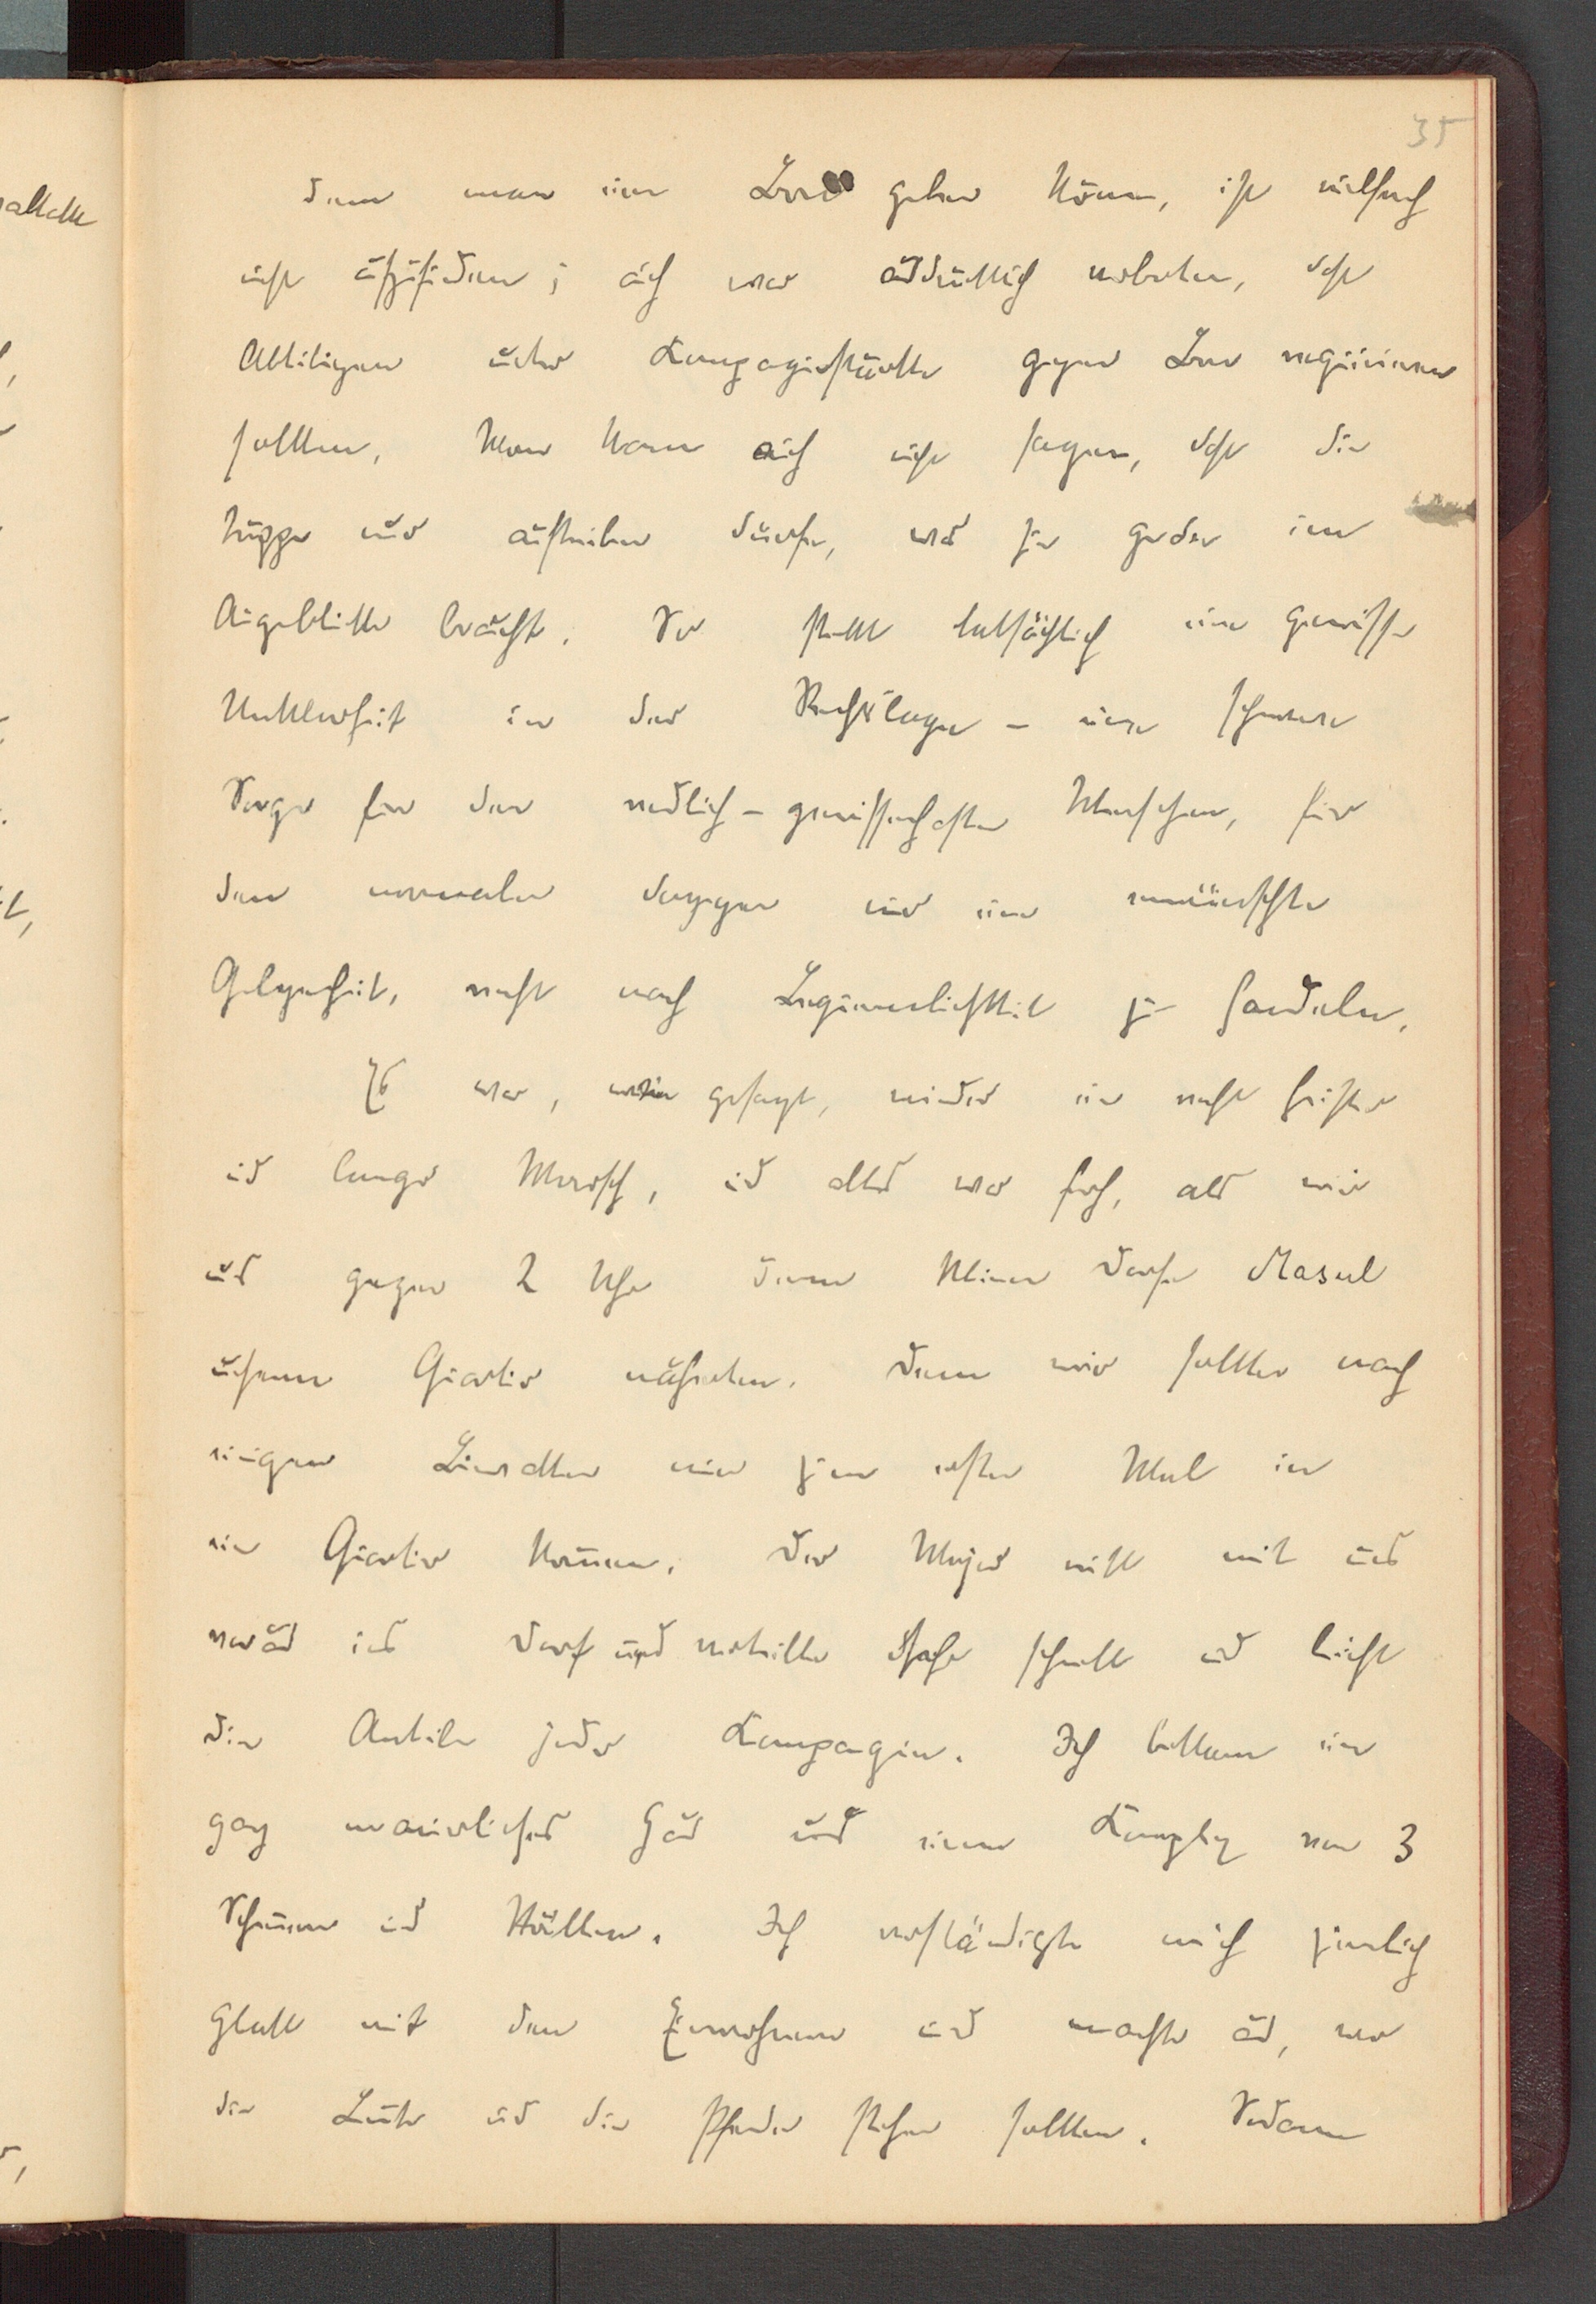 35
dem man einen Bon geben könne, ist vielfach
nicht aufzufinden; auch war ausdrücklich verboten, daß
Abteilungen unter Kompagniestärke gegen Bon requirieren
sollten. Man kann auch nicht sagen, daß die
Truppe nur auftreiben dürfe, was sie gerade im
Augenblicke braucht. So steckt tatsächlich eine gewisse
Unklarheit in der Rechtslage – eine schwere
Sorge für den redlich-gewissenhaften Menschen, für
den normalen dagegen nur eine erwünschte
Gelegenheit, recht nach Bequemlichkeit zu handeln.
Es war, wie gesagt, wieder ein recht heißer
und langer Marsch, und alles war froh, als wir
uns gegen 2 Uhr dem kleinen Dorfe Masul
unserem Quartier näherten. Denn wir sollten nach
einigen Biwaks nun zum ersten Mal in
ein Quartier kommen. Der Major ritt mit uns
voraus ins Dorf und verteilte dasselbe schnell und leicht
die Anteile jeder Kompagnie. Ich bekam ein
ganz manierliches Haus und einen Komplex von 3
Scheunen und Ställen. Ich verständigte mich ziemlich
glatt mit den Einwohnern und machte aus, wo
die Leute und die Pferde stehen sollten. Sodann